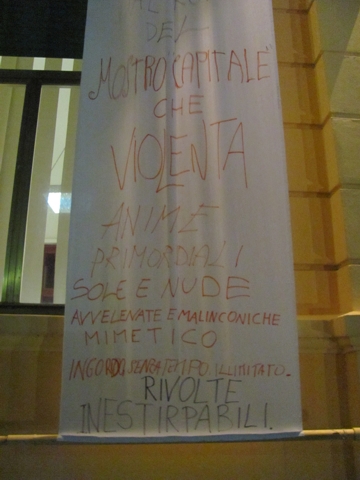 DEL
"MOSTRO CAPITALE"
CHE
VIOLENTA
ANIME
PRIMORDIALI
SOLE E NUDE
AVVELENATE E MALINCONICHE
MIMETICO
INGORDO, SENZA TEMPO, ILLIMITATO.
RIVOLTE
INESTIRPABILI.